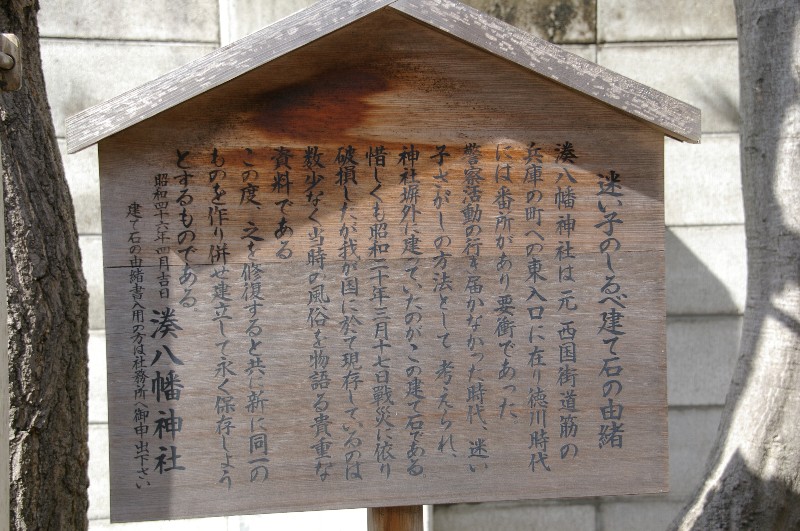 迷い子のしるべ建て石の由緒
湊八幡神社は元 西国街道筋の
兵庫の町への東入口に在り徳川時代
には番所があり要衝であった
警察活動の行き届かなかった時代、迷い
子さがしの方法として 考えられ、
神社塀外に建ていたのが、この建て石である
惜しくも昭和二十年三月十七日戦災に依り
破損したが我が国に於て現存しているのは
数少なく当時の風俗を物語る貴重な
資料である
この度、之を修復すると共に新に同一の
ものを作り併せ建立して永く保存しよう
とするものである
昭和四十六年四月吉日 湊八幡神社
建て石の由緒書入用の方は社務所へ御申出下さい